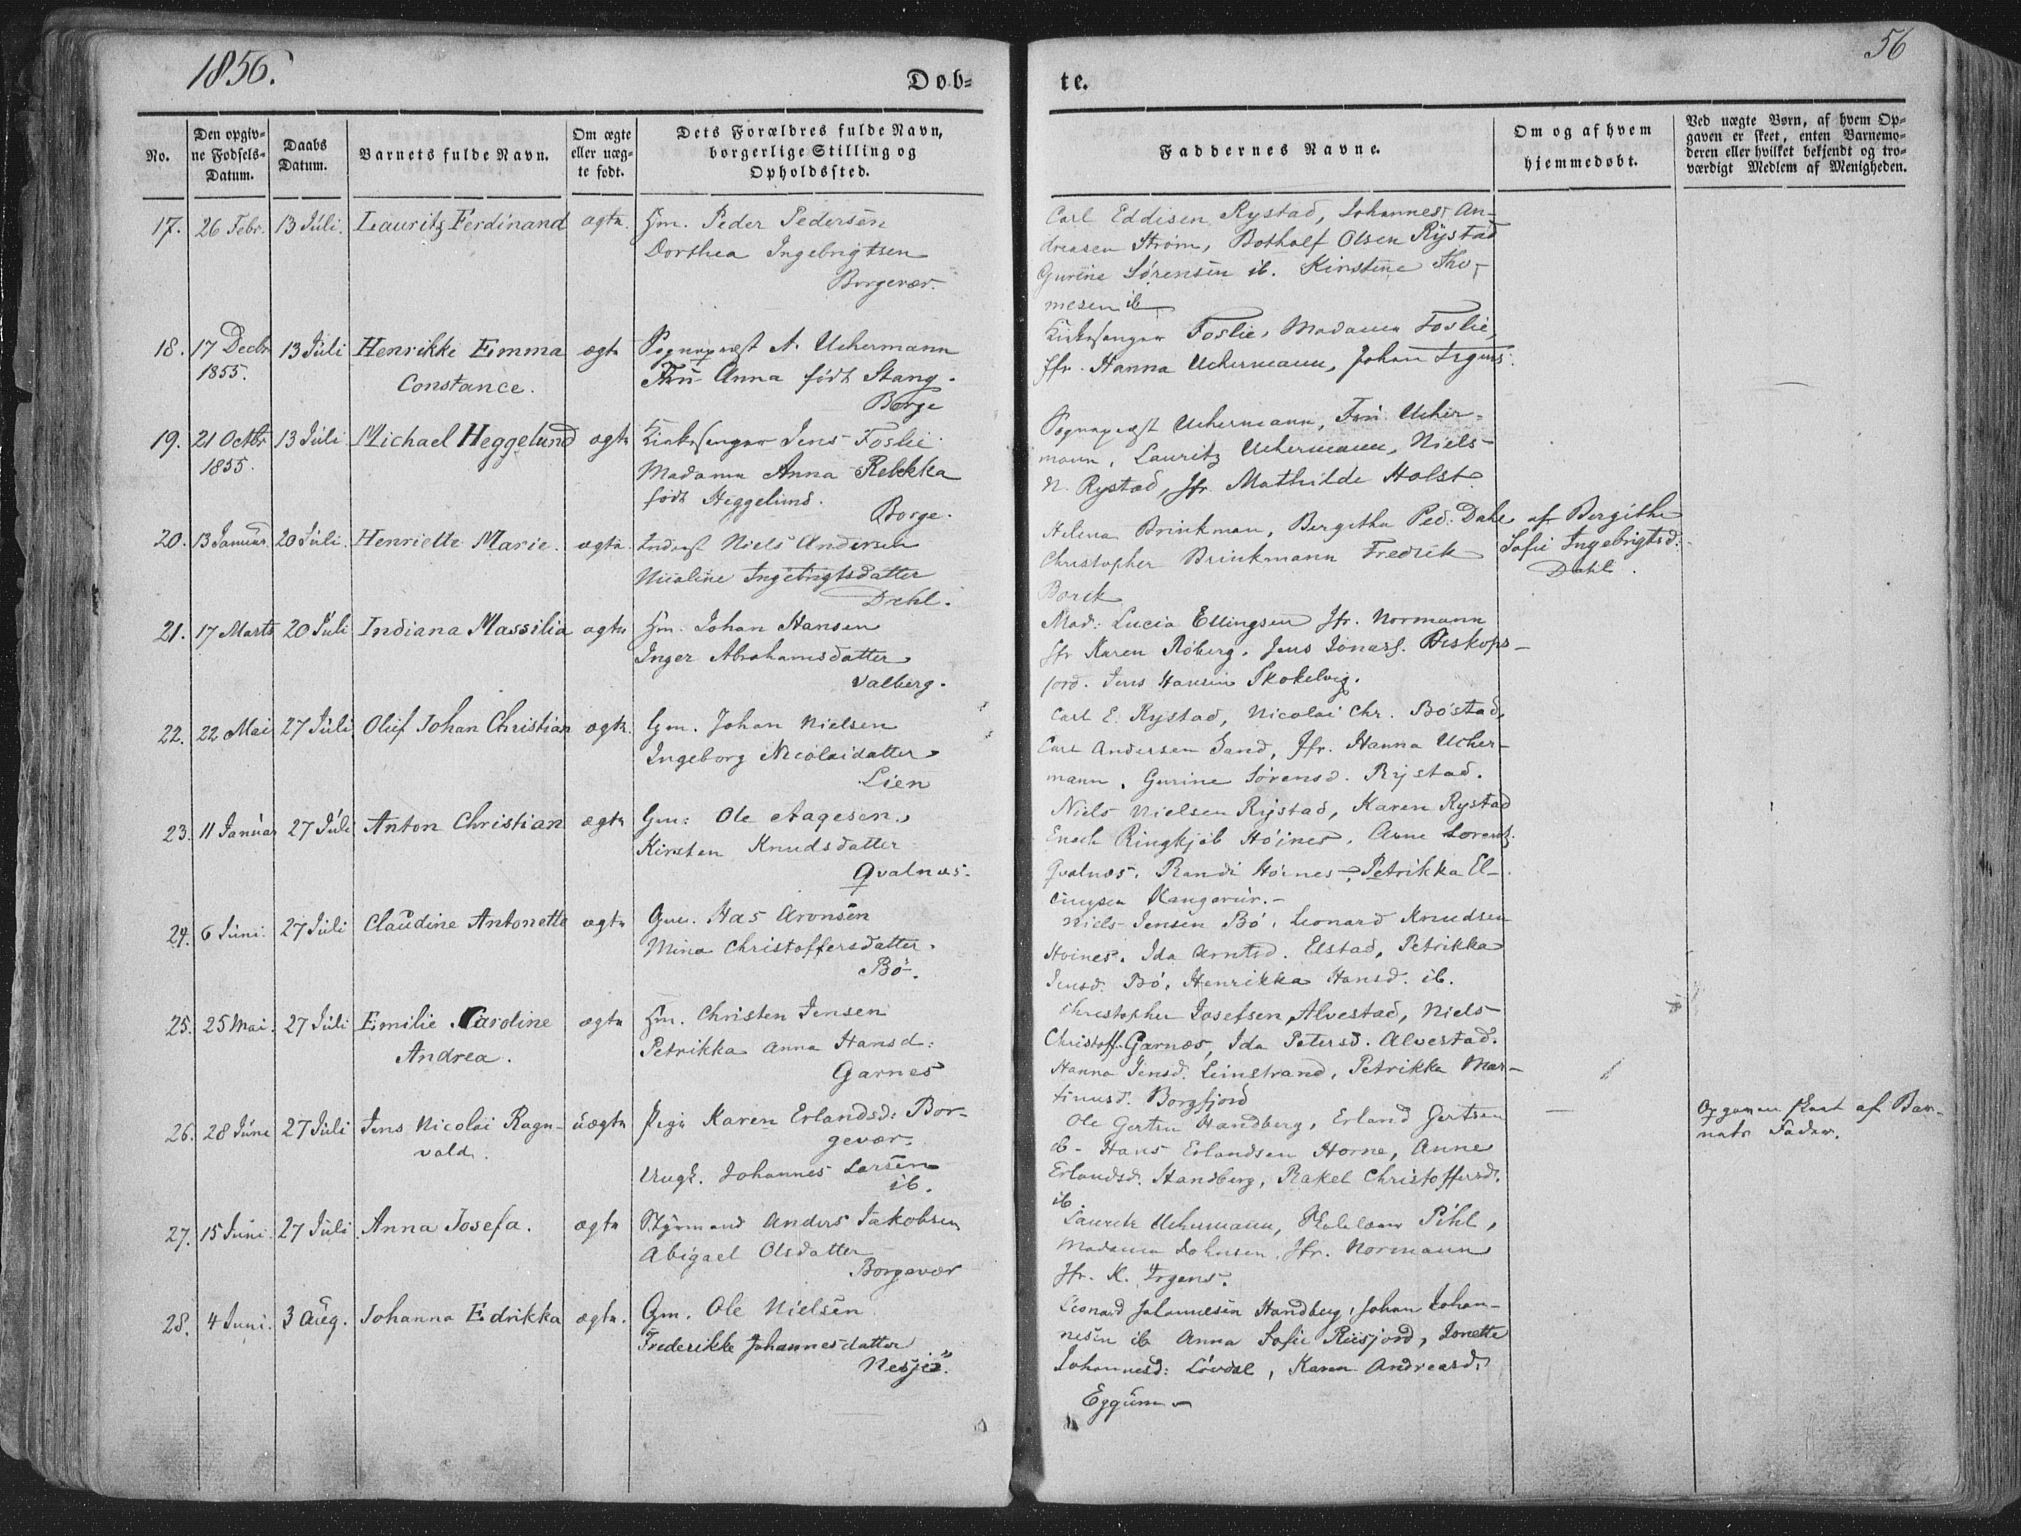 1856.
Døb=
No.
Den opgiv=
ne Fødsels=
Datum.
Daabs
Datum.
Barnets fulde Navn.
Om ægte
eller uæg=
te født.
Dets Forældres fulde Navn,
borgerlige Stilling og
Opholdssted.
17. 26 Febr. 13 Juli. Lauritz Ferdinand ægte. Gm. Peder Pedersen
Dorthea Ingebrigtsen
Borgevær.
18. 17 Decbr 13 Juli Henrikke Emma ægte Sogneprest A. Uchermann
1855. Constance. Fru Anna født Stang.
Borge
19. 21 Octbr 13 Juli Michael Heggelund ægte Kirkesanger Jens Foslie
1855. Madame Anna Rebekka
født Heggelund.
Borge.
20. 13 Januar 20 Juli. Henriette Marie. ægte Inderst Niels Andersen
Nicoline Ingebrigtsdatter
Dahl.
21. 17 Marts 20 Juli Indiana Massilia ægte Gm. Johan Hansen
Inger Abrahamsdatter
Valberg.
22. 22 Mai 27 Juli Oluf Johan Christian ægte. Gm. Johan Nielsen
Ingeborg Nicolaidatter
Lien
23. 11 Januar 27 Juli Anton Christian ægte Gm: Ole Aagesen.
Kirsten Knudsdatter
Qvalnæs.
24. 6 Juni. 27 Juli Claudine Antonette ægte Gm. Has Aronsen
Mina Christoffersdatter.
Bø.
25. 25 Mai. 27 Juli Emilie Caroline ægte Gm. Christen Jensen
Andrea. Petrikka Anna Hansd:
Garnes
26. 28 Juni 27 Juli Jens Nicolai Ragn- uægte Pige Karen Erlandsd: Bor-
vald. gevær.
Ungk. Johannes Larsen
ib.
27. 15 Juni. 27 Juli Anna Josefa. ægte Styrmand Anders Jakobsen
Abigael Olsdatter
Borgevær
28. 4 Juni. 3 Aug. Johanna Edrikka ægte. Gm. Ole Nielsen
Frederikke Johannesdatter
Nesje.
56
te.
Faddernes Navne.
Om og af hvem
hjemmedøbt.
Ved uægte Børn, af hvem Op=
gaven er skeet, enten Barnemo=
deren eller hvilket bekjendt og tro=
værdigt Medlem af Menigheden.
Carl Eddisen Rystad, Johannes An-
dreasen Strøm, Botholf Olsen Rystad
Gurine Sørensen ib. Kirstine Tho-
mesen ib
Kirkesanger Foslie, Madame Foslie,
Jfr. Hanna Uchermann, Johan Irgens.
Sogneprest Uchermann, Fru Ucher-
mann, Lauritz Uchermann, Niels
N. Rystad, Jfr. Mathilde Holst.
Helena Brinkman, Bergitha Ped. Dahl af Bergithe
Christopher Brinkmann Fredrik Sofie Ingebrigtsd:
Borck Dahl.
Mad: Lucia Ellingsen Jfr. Normann
Jfr Karen Röberg, Jens Jonass. Biskops-
jord. Jens Hansen Skokelvig.
Carl E. Rystad, Nicolai Chr. Böstad,
Carl Andersen Sand, Jfr. Hanna Ucher-
mann, Gurine Sörensd. Rystad.
Niels Nielsen Rystad, Karen Rystad
Enoch Ringkjöb Höines, Arne Lorentz.
Qvalnæs. Randi Höines, Petrikka El-
lingsen Kangerur.
Niels Jensen Bö, Leonard Knudsen
Höines, Ida Arntsd. Elstad, Petrikka
Jensd: Bö, Henrikka Hansd. ib.
Christopher Josefsen, Alvestad, Niels
Christoff. Garnæs, Ida Petersd. Alvestad.
Hanna Jensd. Leinstrand, Petrikka Mar-
tinusd. Borgfjord
Ole Gertsen Handberg, Erland Gertsen Opgaven skeet af Bar-
ib - Hans Erlandsen Horne, Anne nets Fader.
Erlandsd. Handberg, Rakel Christoffersd.
ib.
Lauritz Uchermann, Pihl,
Madame Johnsen, Jfr. Normann
Jfr. K. Irgens.
Leonard Johannesen Handberg, Johan Johan-
nesen ib Anna Sofie Riisjord, Jonette
Johannesd: Lövdal, Karen Andreasd.
Eggum